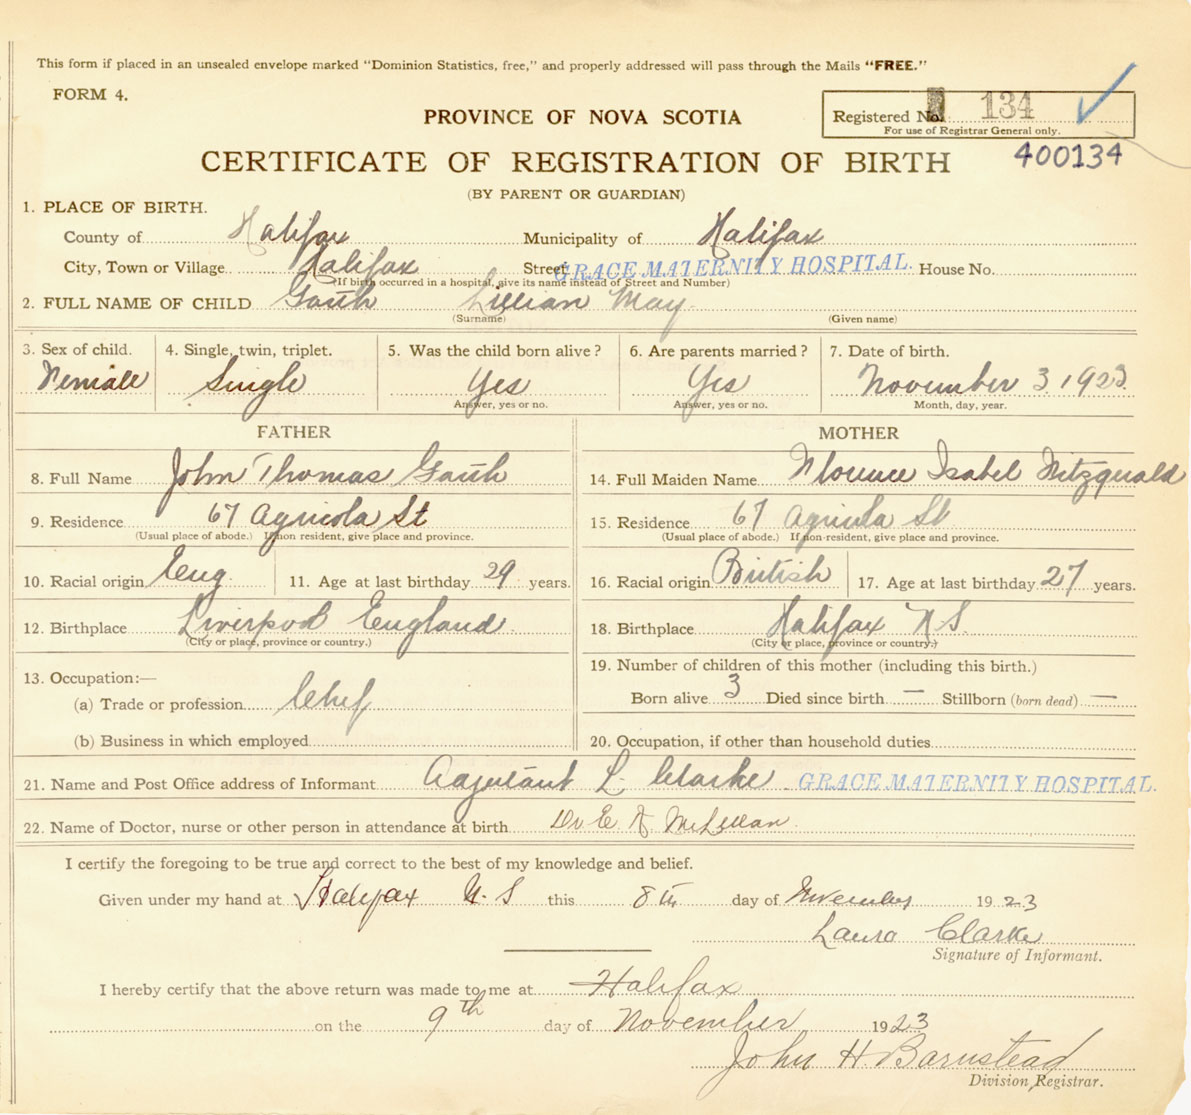 This form if placed in an unsealed envelope marked "Dominion Statistics, free," and properly addressed will pass through the Mails "FREE."
FORM 4.
PROVINCE OF NOVA SCOTIA
Registered No. 134
For use of Registrar General only.
CERTIFICATE OF REGISTRATION OF BIRTH
400134
(BY PARENT OR GUARDIAN)
1. PLACE OF BIRTH.
County of Halifax Municipality of Halifax
City, Town or Village Halifax Street GRACE MATERNITY HOSPITAL. House No.
(If birth occurred in a hospital, give its name instead of Street and Number)
2. FULL NAME OF CHILD Lillian May
(Surname) (Given name)
3. Sex of child. 4. Single, twin, triplet. 5. Was the child born alive? 6. Are parents married? 7. Date of birth.
Female Single Yes Yes November 3. 1923.
Answer, yes or no. Answer, yes or no. Month, day, year.
FATHER MOTHER
8. Full Name John Thomas 14. Full Maiden Name Florence Isabel Fitzgerald
9. Residence 67 Agricola St 15. Residence 67 Agricola St
(Usual place of abode.) If non resident, give place and province. (Usual place of abode.) If non-resident, give place and province.
10. Racial origin Eng. 11. Age at last birthday 29 years. 16. Racial origin British 17. Age at last birthday 27 years.
12. Birthplace Liverpool England. 18. Birthplace Halifax N.S.
(City or place, province or country.) (City or place, province or country.)
13. Occupation:— 19. Number of children of this mother (including this birth.)
(a) Trade or profession Chef Born alive 3 Died since birth — Stillborn (born dead) —
(b) Business in which employed 20. Occupation, if other than household duties
21. Name and Post Office address of Informant Adjutant L. Clarke. GRACE MATERNITY HOSPITAL.
22. Name of Doctor, nurse or other person in attendance at birth Dr E A McLellan.
I certify the foregoing to be true and correct to the best of my knowledge and belief.
Given under my hand at Halifax N.S this 8th day of November 1923
Laura Clarke
Signature of Informant.
I hereby certify that the above return was made to me at Halifax
on the 9th day of November 1923
John H. Barnstead
Division Registrar.